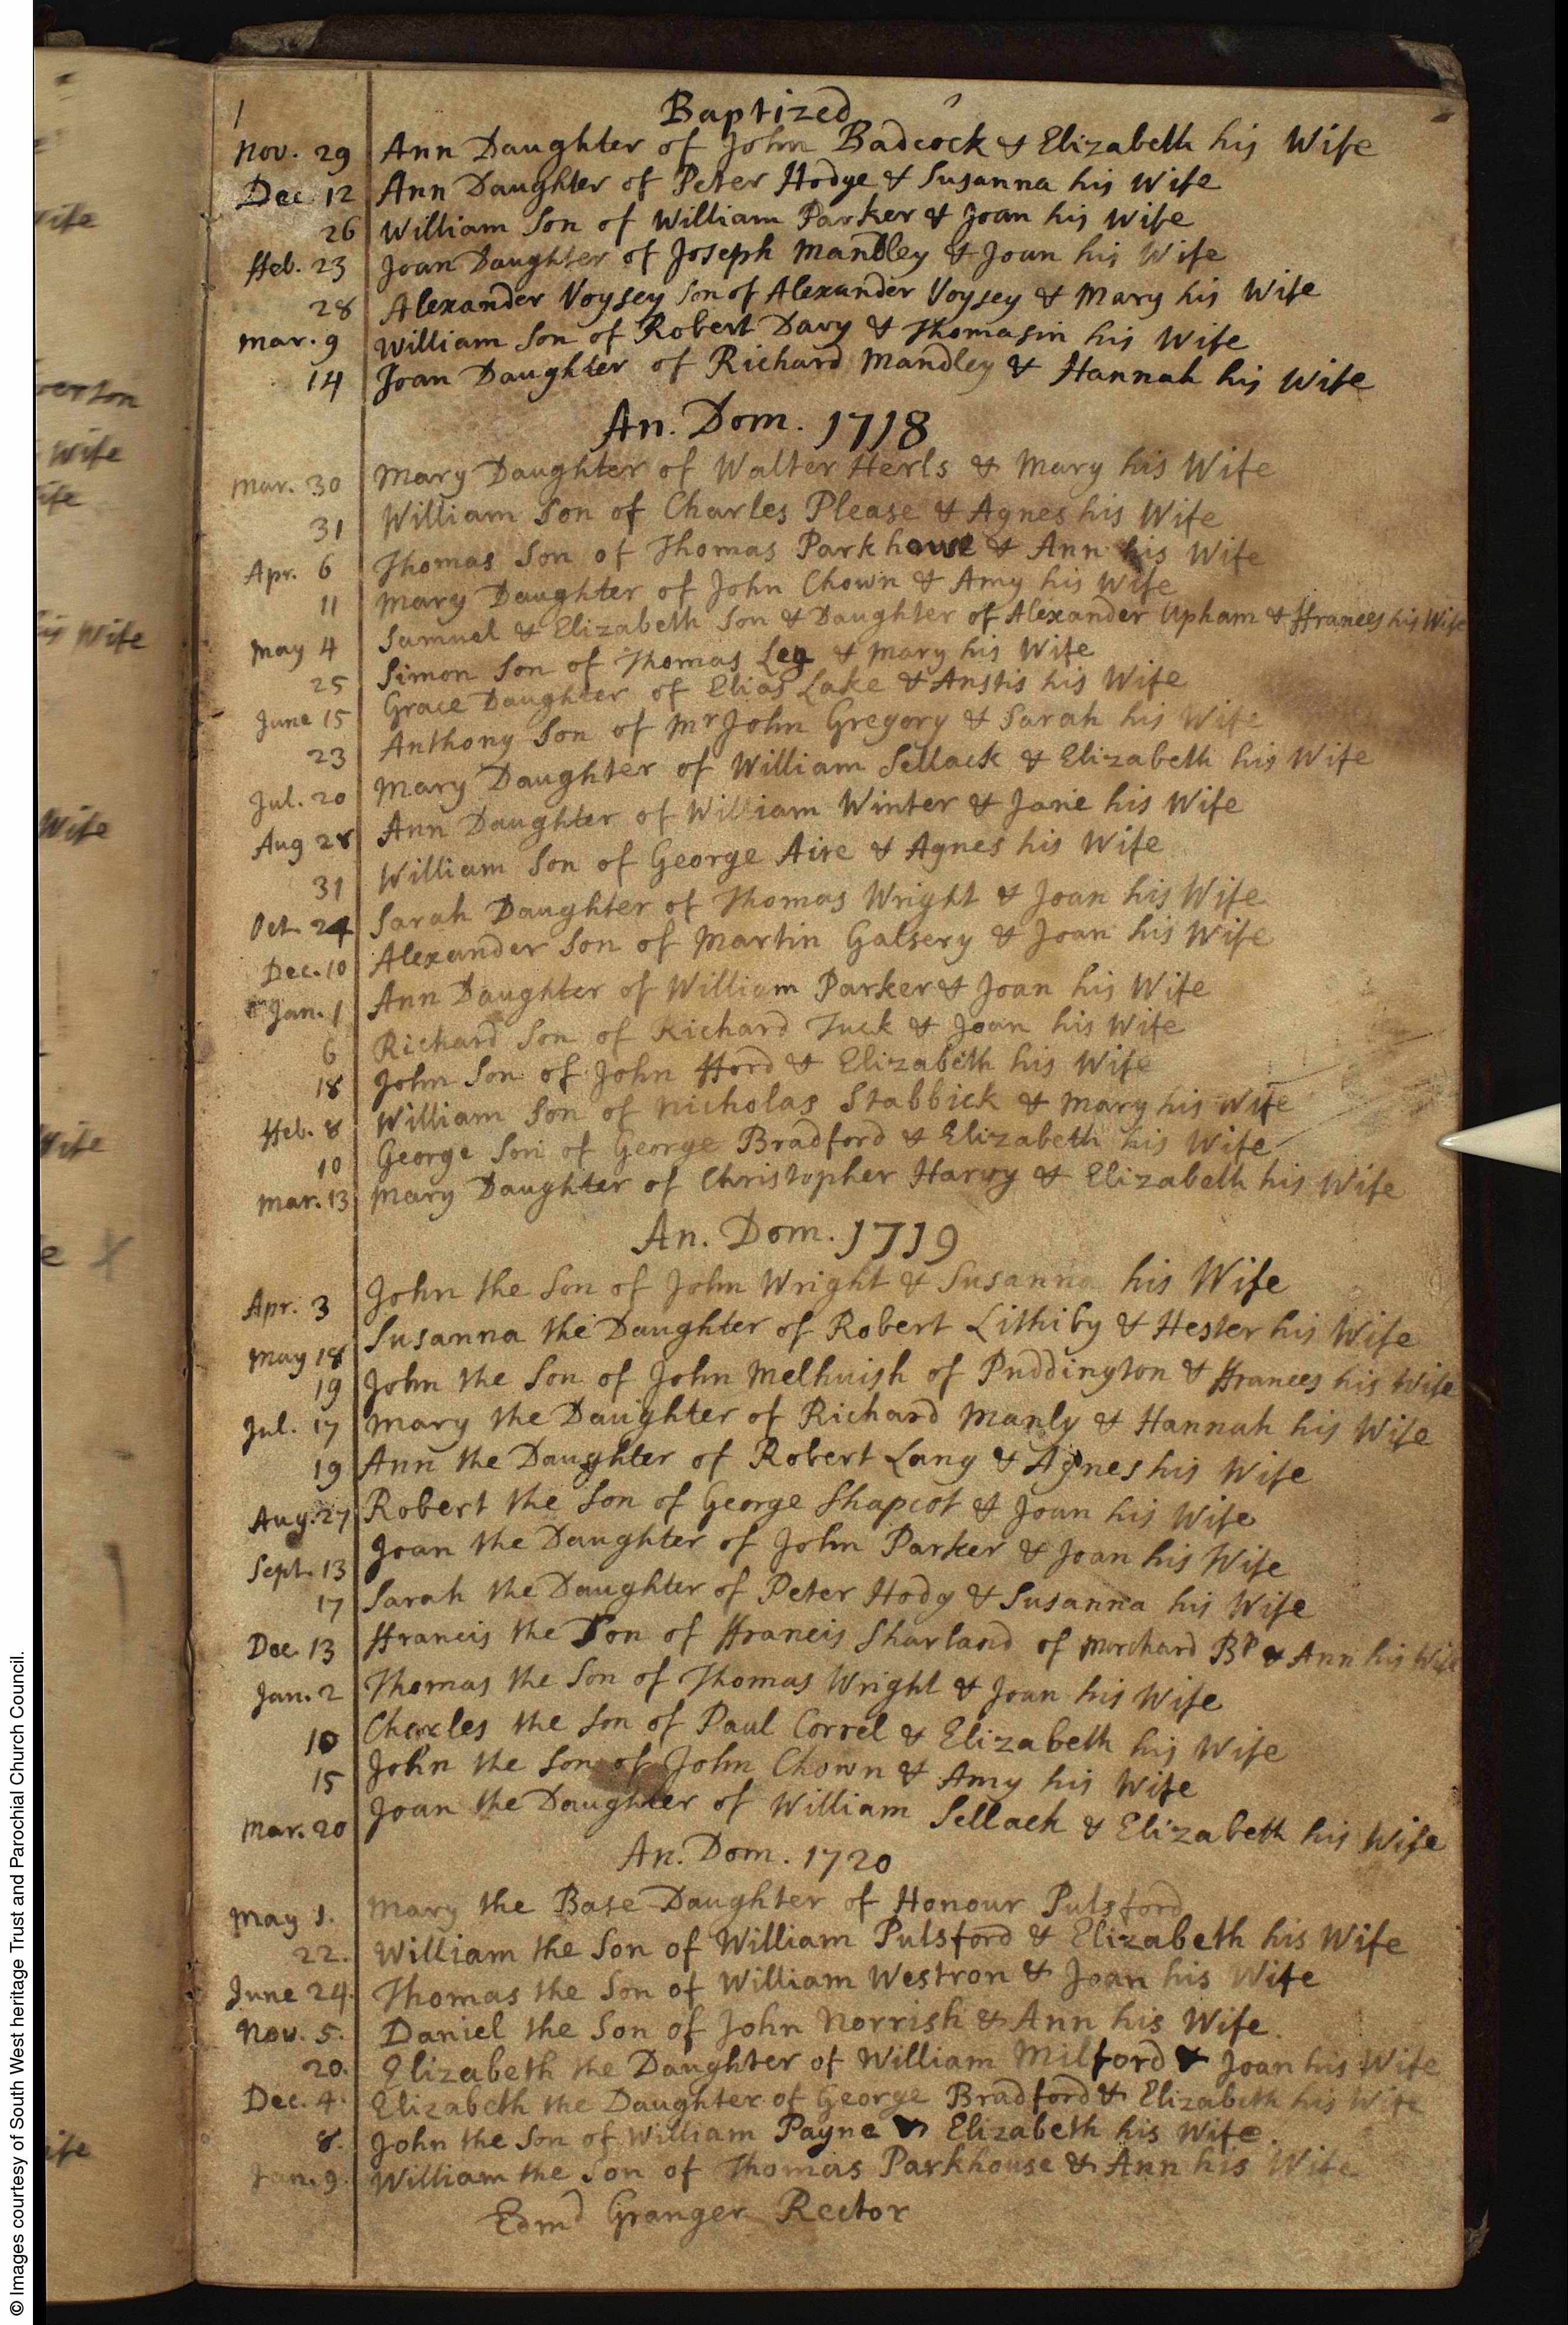 Baptized
Nov. 29 Ann Daughter of John Badcock & Elizabeth his Wife
Dec. 12 Ann Daughter of Peter Hodge & Susanna his Wife
26 William Son of William Parker & Joan his Wife
ffeb. 23 Joan Daughter of Joseph Mandley & Joan his Wife
28 Alexander Voysey Son of Alexander Voysey & Mary his Wife
Mar. 9 William Son of Robert Davy & Thomasin his Wife
14 Joan Daughter of Richard Mandley & Hannah his Wife
An. Dom. 1718
Mar. 30 Mary Daughter of Walter Herls & Mary his Wife
31 William Son of Charles Please & Agnes his Wife
Apr. 6 Thomas Son of Thomas Parkhouse & Ann his Wife
11 Mary Daughter of John Chown & Amy his Wife
May 4 Samuel & Elizabeth Son & Daughter of Alexander Upham & ffrances his Wife
25 Simon Son of Thomas Leg & Mary his Wife
June 15 Grace Daughter of Elias Lake & Anstis his Wife
23 Anthony Son of Mr John Gregory & Sarah his Wife
Jul. 20 Mary Daughter of William Sellack & Elizabeth his Wife
Aug 28 Ann Daughter of William Winter & Jane his Wife
31 William Son of George Aire & Agnes his Wife
Oct. 24 Sarah Daughter of Thomas Wright & Joan his Wife
Dec. 10 Alexander Son of Martin Galsery & Joan his Wife
Jan. 1 Ann Daughter of William Parker & Joan his Wife
6 Richard Son of Richard Tuck & Joan his Wife
18 John Son of John fford & Elizabeth his Wife
ffeb. 8 William Son of Nicholas Stabbick & Mary his Wife
10 George Son of George Bradford & Elizabeth his Wife
Mar. 13 Mary Daughter of Christopher Harvy & Elizabeth his Wife
An. Dom. 1719
Apr. 3 John the Son of John Wright & Susanna his Wife
May 18 Susanna the Daughter of Robert Lithiby & Hester his Wife
19 John the Son of John Melhuish of Puddington & ffrances his Wife
Jul. 17 Mary the Daughter of Richard Manly & Hannah his Wife
19 Ann the Daughter of Robert Lang & Agnes his Wife
Aug. 27 Robert the Son of George Shapcot & Joan his Wife
Sept. 13 Joan the Daughter of John Parker & Joan his Wife
17 Sarah the Daughter of Peter Hodg & Susanna his Wife
Dec. 13 ffrancis the Son of ffrancis Sharland of Morchard Bp & Ann his Wife
Jan. 2 Thomas the Son of Thomas Wright & Joan his Wife
10 Charles the Son of Paul Correl & Elizabeth his Wife
15 John the Son of John Chown & Amy his Wife
Mar. 20 Joan the Daughter of William Sellack & Elizabeth his Wife
An. Dom. 1720
May 1. Mary the Base Daughter of Honour Pulsford
22. William the Son of William Pulsford & Elizabeth his Wife
June 24. Thomas the Son of William Westron & Joan his Wife
Nov. 5. Daniel the Son of John Norrish & Ann his Wife.
20. Elizabeth the Daughter of William Milford & Joan his Wife
Dec. 4. Elizabeth the Daughter of George Bradford & Elizabeth his Wife
8. John the Son of William Payne & Elizabeth his Wife.
Jan. 9. William the Son of Thomas Parkhouse & Ann his Wife
Edmd Granger Rector
© Images courtesy of South West heritage Trust and Parochial Church Council.